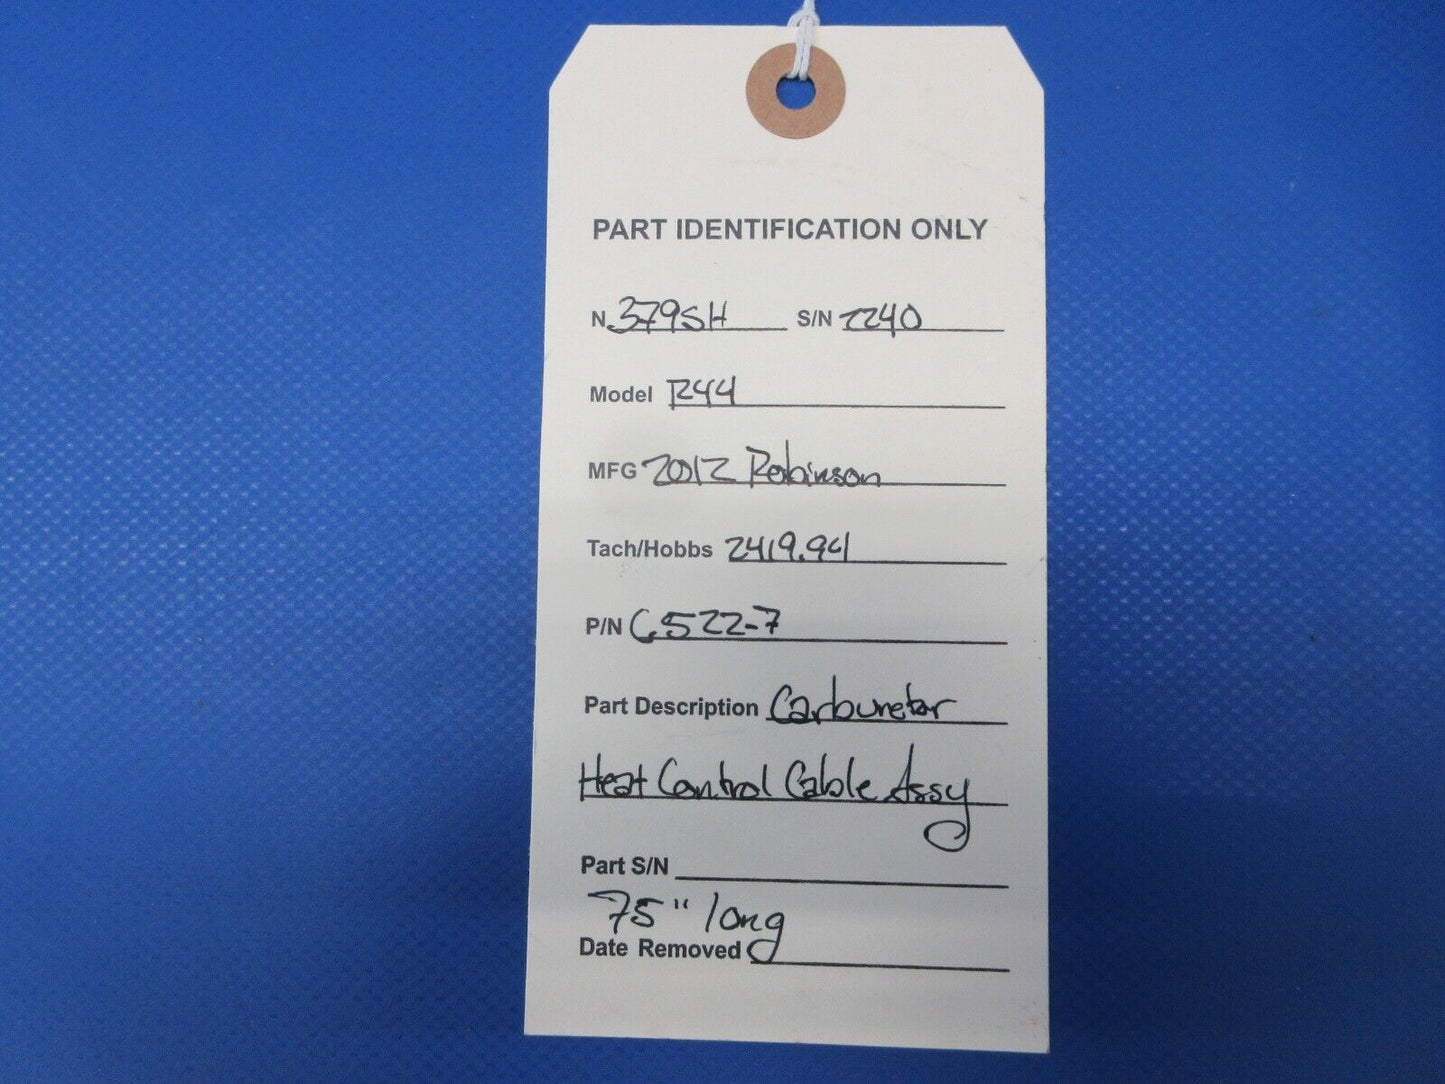 PART IDENTIFICATION ONLY
N 379SH S/N 2240
Model R44
MFG 2012 Robinson
Tach/Hobbs 2419.94
P/N C522-7
Part Description Carburetor
Heat Control Cable Assy
Part S/N
75" long
Date Removed